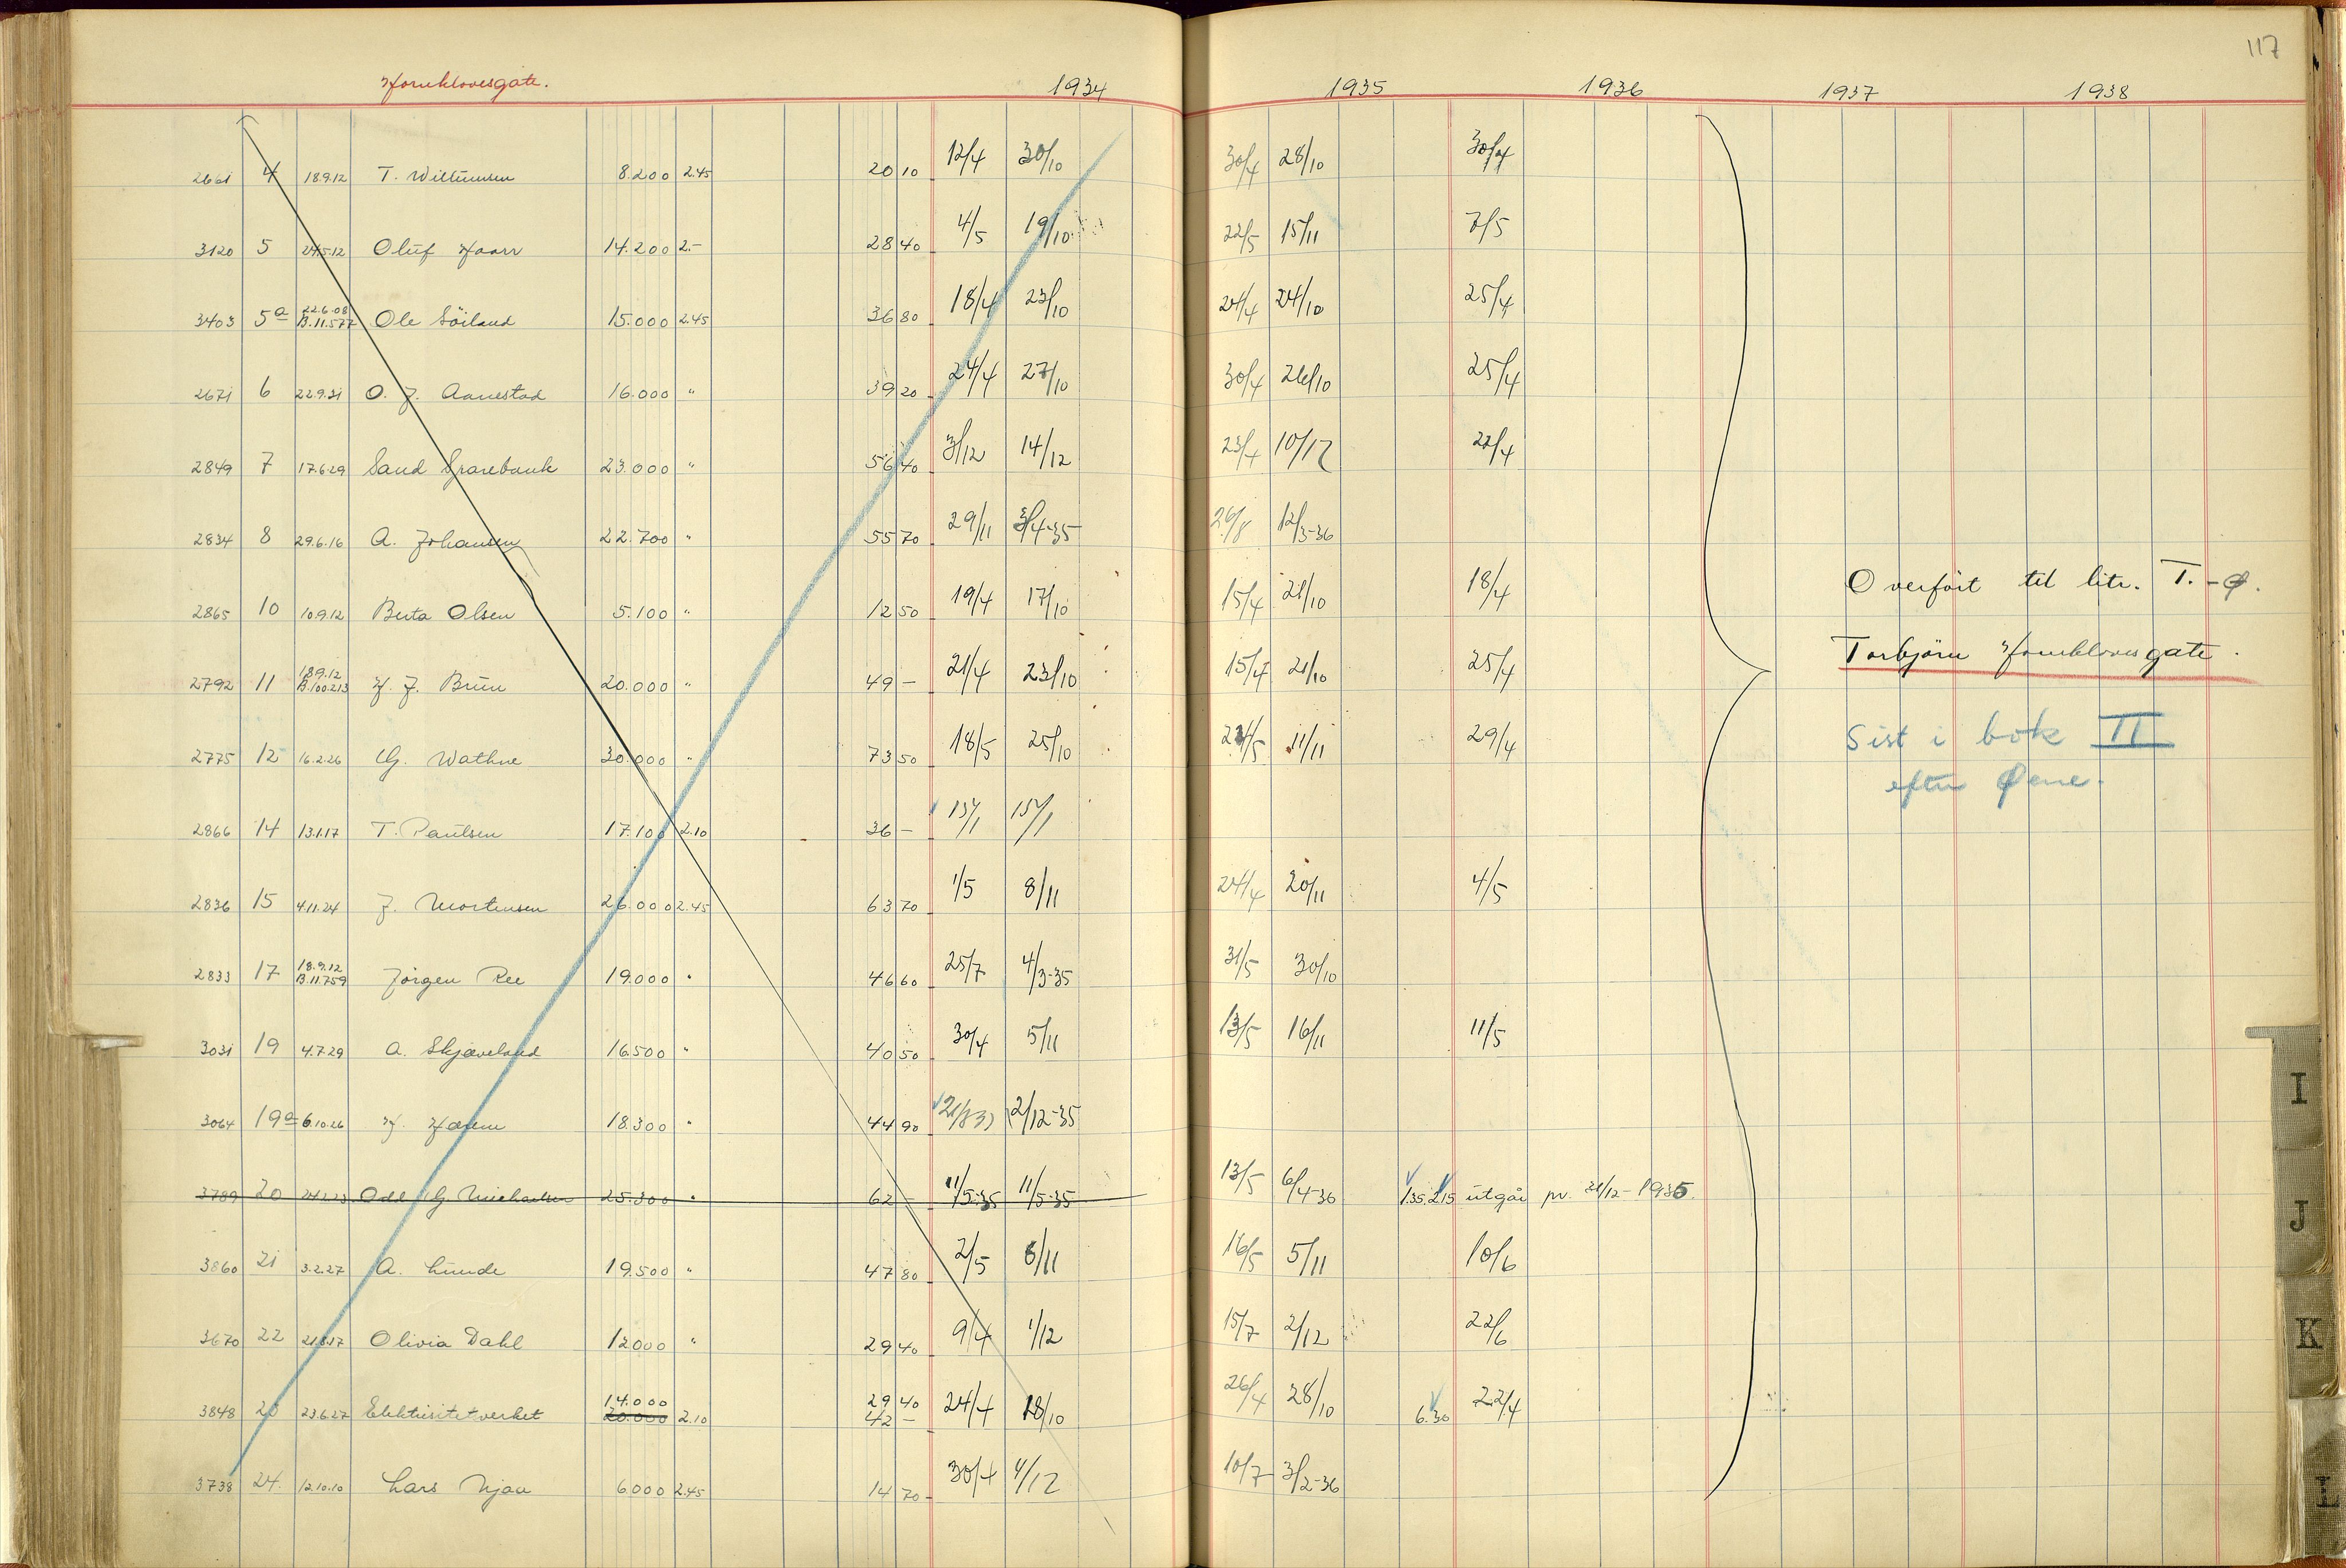 117
Hornklovesgate. 1934 1935 1936 1937 1938
2661 4 18.9.12 T. Willumsen 8.200 2.45 20 10 12/4 30/10 30/4 28/10 30/4
3120 5 24.5.12 Oluf Haarr 14.200 2.- 28 40 4/5 19/10 22/5 15/11 7/5
3403 5a 22.6.08 B.11.577 Ole Söiland 15.000 2.45 36 80 18/4 23/10 24/4 24/10 25/4
2671 6 22.9.31 O. J. Aanestad 16.000 " 39 20 24/4 27/10 30/4 26/10 25/4
2849 7 17.6.29 Sand Sparebank 23.000 " 56 40 3/12 14/12 23/4 10/12 22/4
2834 8 29.6.16 A. Johansen 22.700 " 55 70 29/11 3/4-35 26/8 12/3-36
2865 10 10.9.12 Berta Olsen 5.100 " 12 50 19/4 17/10 15/4 21/10 18/4
Overfört til litr. T.-Ø.
2792 11 18.9.12 B.100.213 H. J. Brun 20.000 " 49 - 21/4 23/10 15/4 21/10 25/4
Torbjörn Hornklovesgate.
2775 12 16.2.26 G. Wathne 30.000 " 73 50 18/5 25/10 11/11 29/4
Sist i bok II
efter Øene.
2866 14 13.1.17 T. Paulsen 17.100 2.10 36 - 15/1 15/1
2836 15 4.11.24 J. Mortensen 26.000 2.45 63 70 1/5 8/11 24/4 20/11 4/5
2833 17 18.9.12 B.11.759 Jörgen Ree 19.000 " 46 60 25/7 4/3-35 31/5 30/10
3031 19 4.7.29 A. Skjæveland 16.500 " 40 50 30/4 5/11 13/5 16/11 11/5
3064 19a 6.10.26 18.300 " 44 90 2/12-35
3789 20 Odd G. Michaelsen 25.300 " 62 - 11/5-35 11/5-35 13/5 6/4-36 1.35 2.15 utgår pr. 31/12-1935.
3860 21 3.2.27 A. Lunde 19.500 " 47 80 2/5 6/11 16/5 5/11 10/6
3670 22 Olivia Dahl 12.000 " 29 40 9/4 1/12 15/7 2/12 22/6
14.000 29 40
3848 23 23.6.27 Elektrisitetverket 20.000 2.10 42 - 24/4 18/10 26/4 28/10 6.30 22/4
3738 24. 12.10.10 Lars Njaa 6.000 2.45 14 70 30/4 4/12 10/7 3/2-36
I
J
K
L